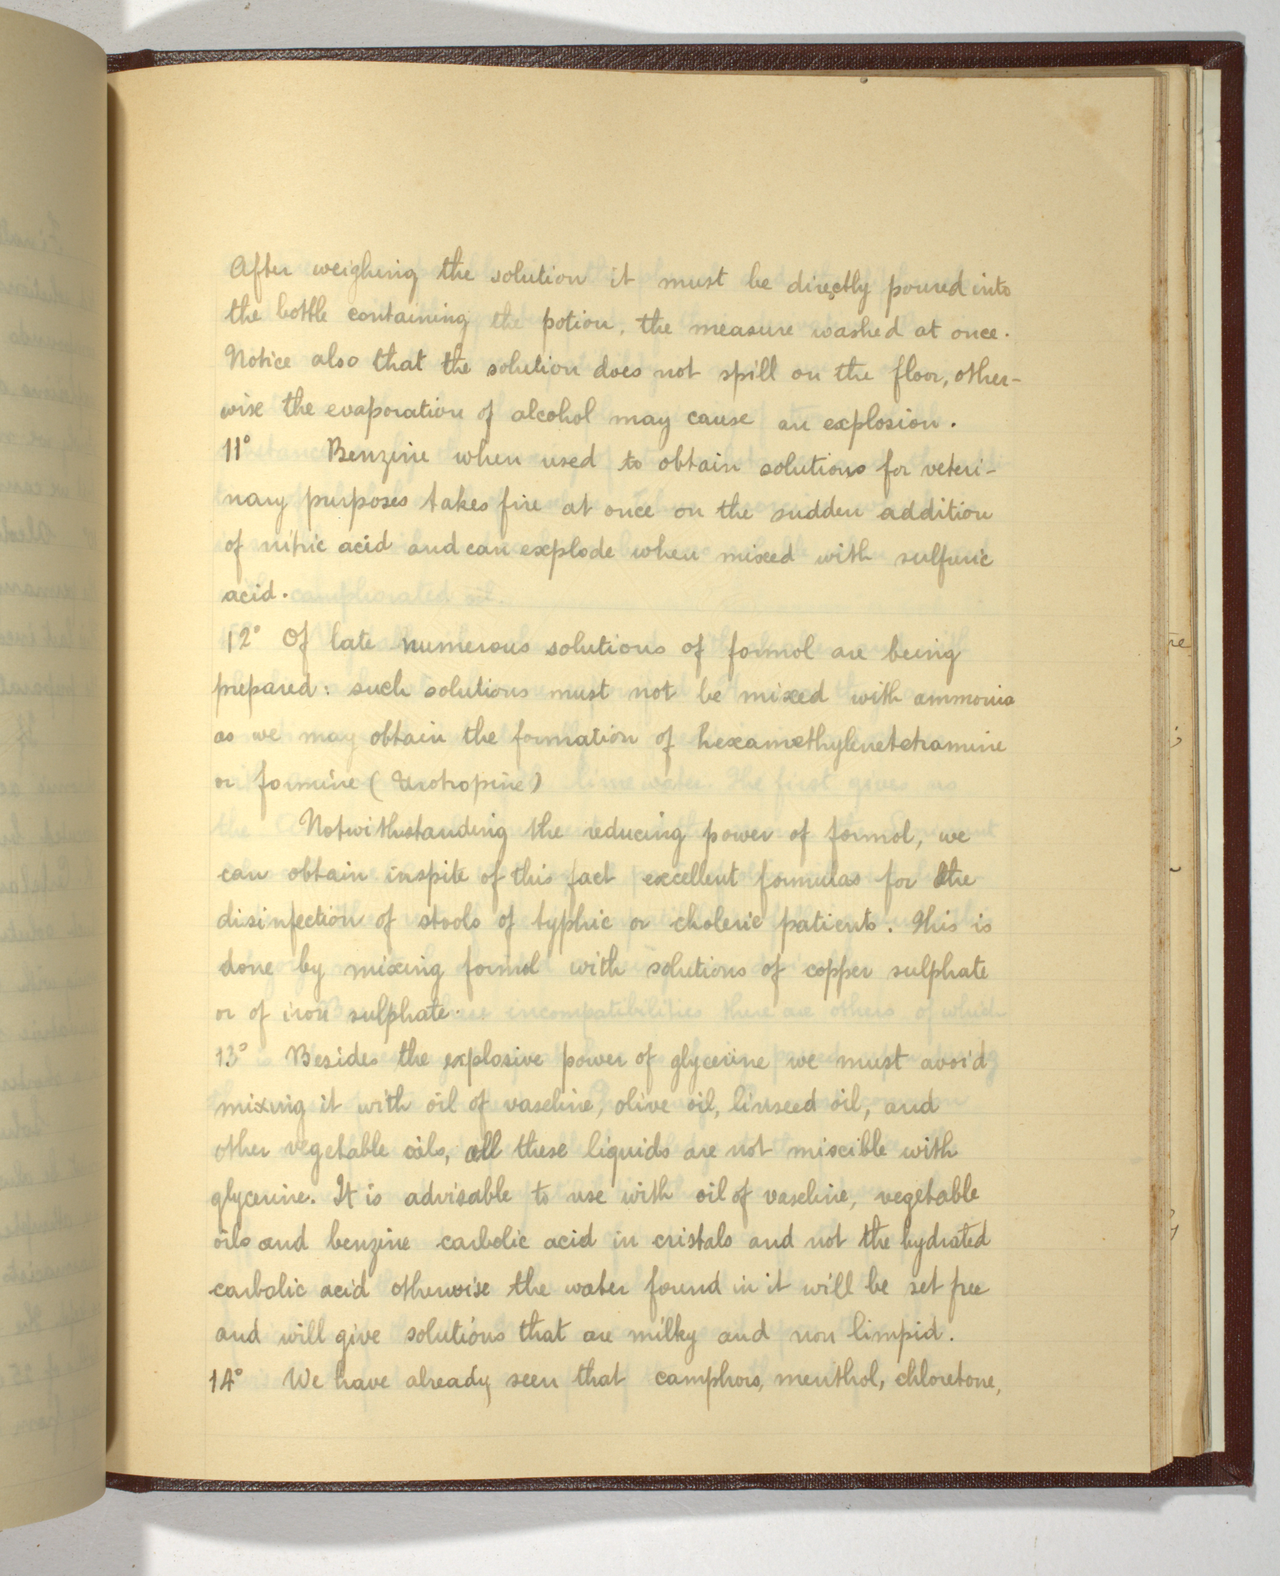 After weighing the solution it must be directly poured into
the bottle containing the potion, the measure washed at once.
Notice also that the solution does not spill on the floor, other-
wise the evaporation of alcohol may cause an explosion.
11° Benzine when used to obtain solutions for veteri-
nary purposes takes fire at once on the sudden addition
of nitric acid and can explode when mixed with sulfuric
acid.
12° Of late numerous solutions of formol are being
prepared: such solutions must not be mixed with ammonia
as we may obtain the formation of hexamethylenetetramine
or formine (Urotropine)
Notwithstanding the reducing power of formol, we
can obtain inspite of this fact excellent formulas for the
disinfection of stools of typhic or choleric patients. This is
done by mixing formol with solutions of copper sulphate
or of iron sulphate.
13° Besides the explosive power of glycerine we must avoid
mixing it with oil of vaseline, olive oil, linseed oil, and
other vegetable oils, all these liquids are not miscible with
glycerine. It is advisable to use with oil of vaseline, vegetable
oils and benzine carbolic acid in cristals and not the hydrated
carbolic acid otherwise the water found in it will be set free
and will give solutions that are milky and non limpid.
14° We have already seen that camphors, menthol, chloretone,